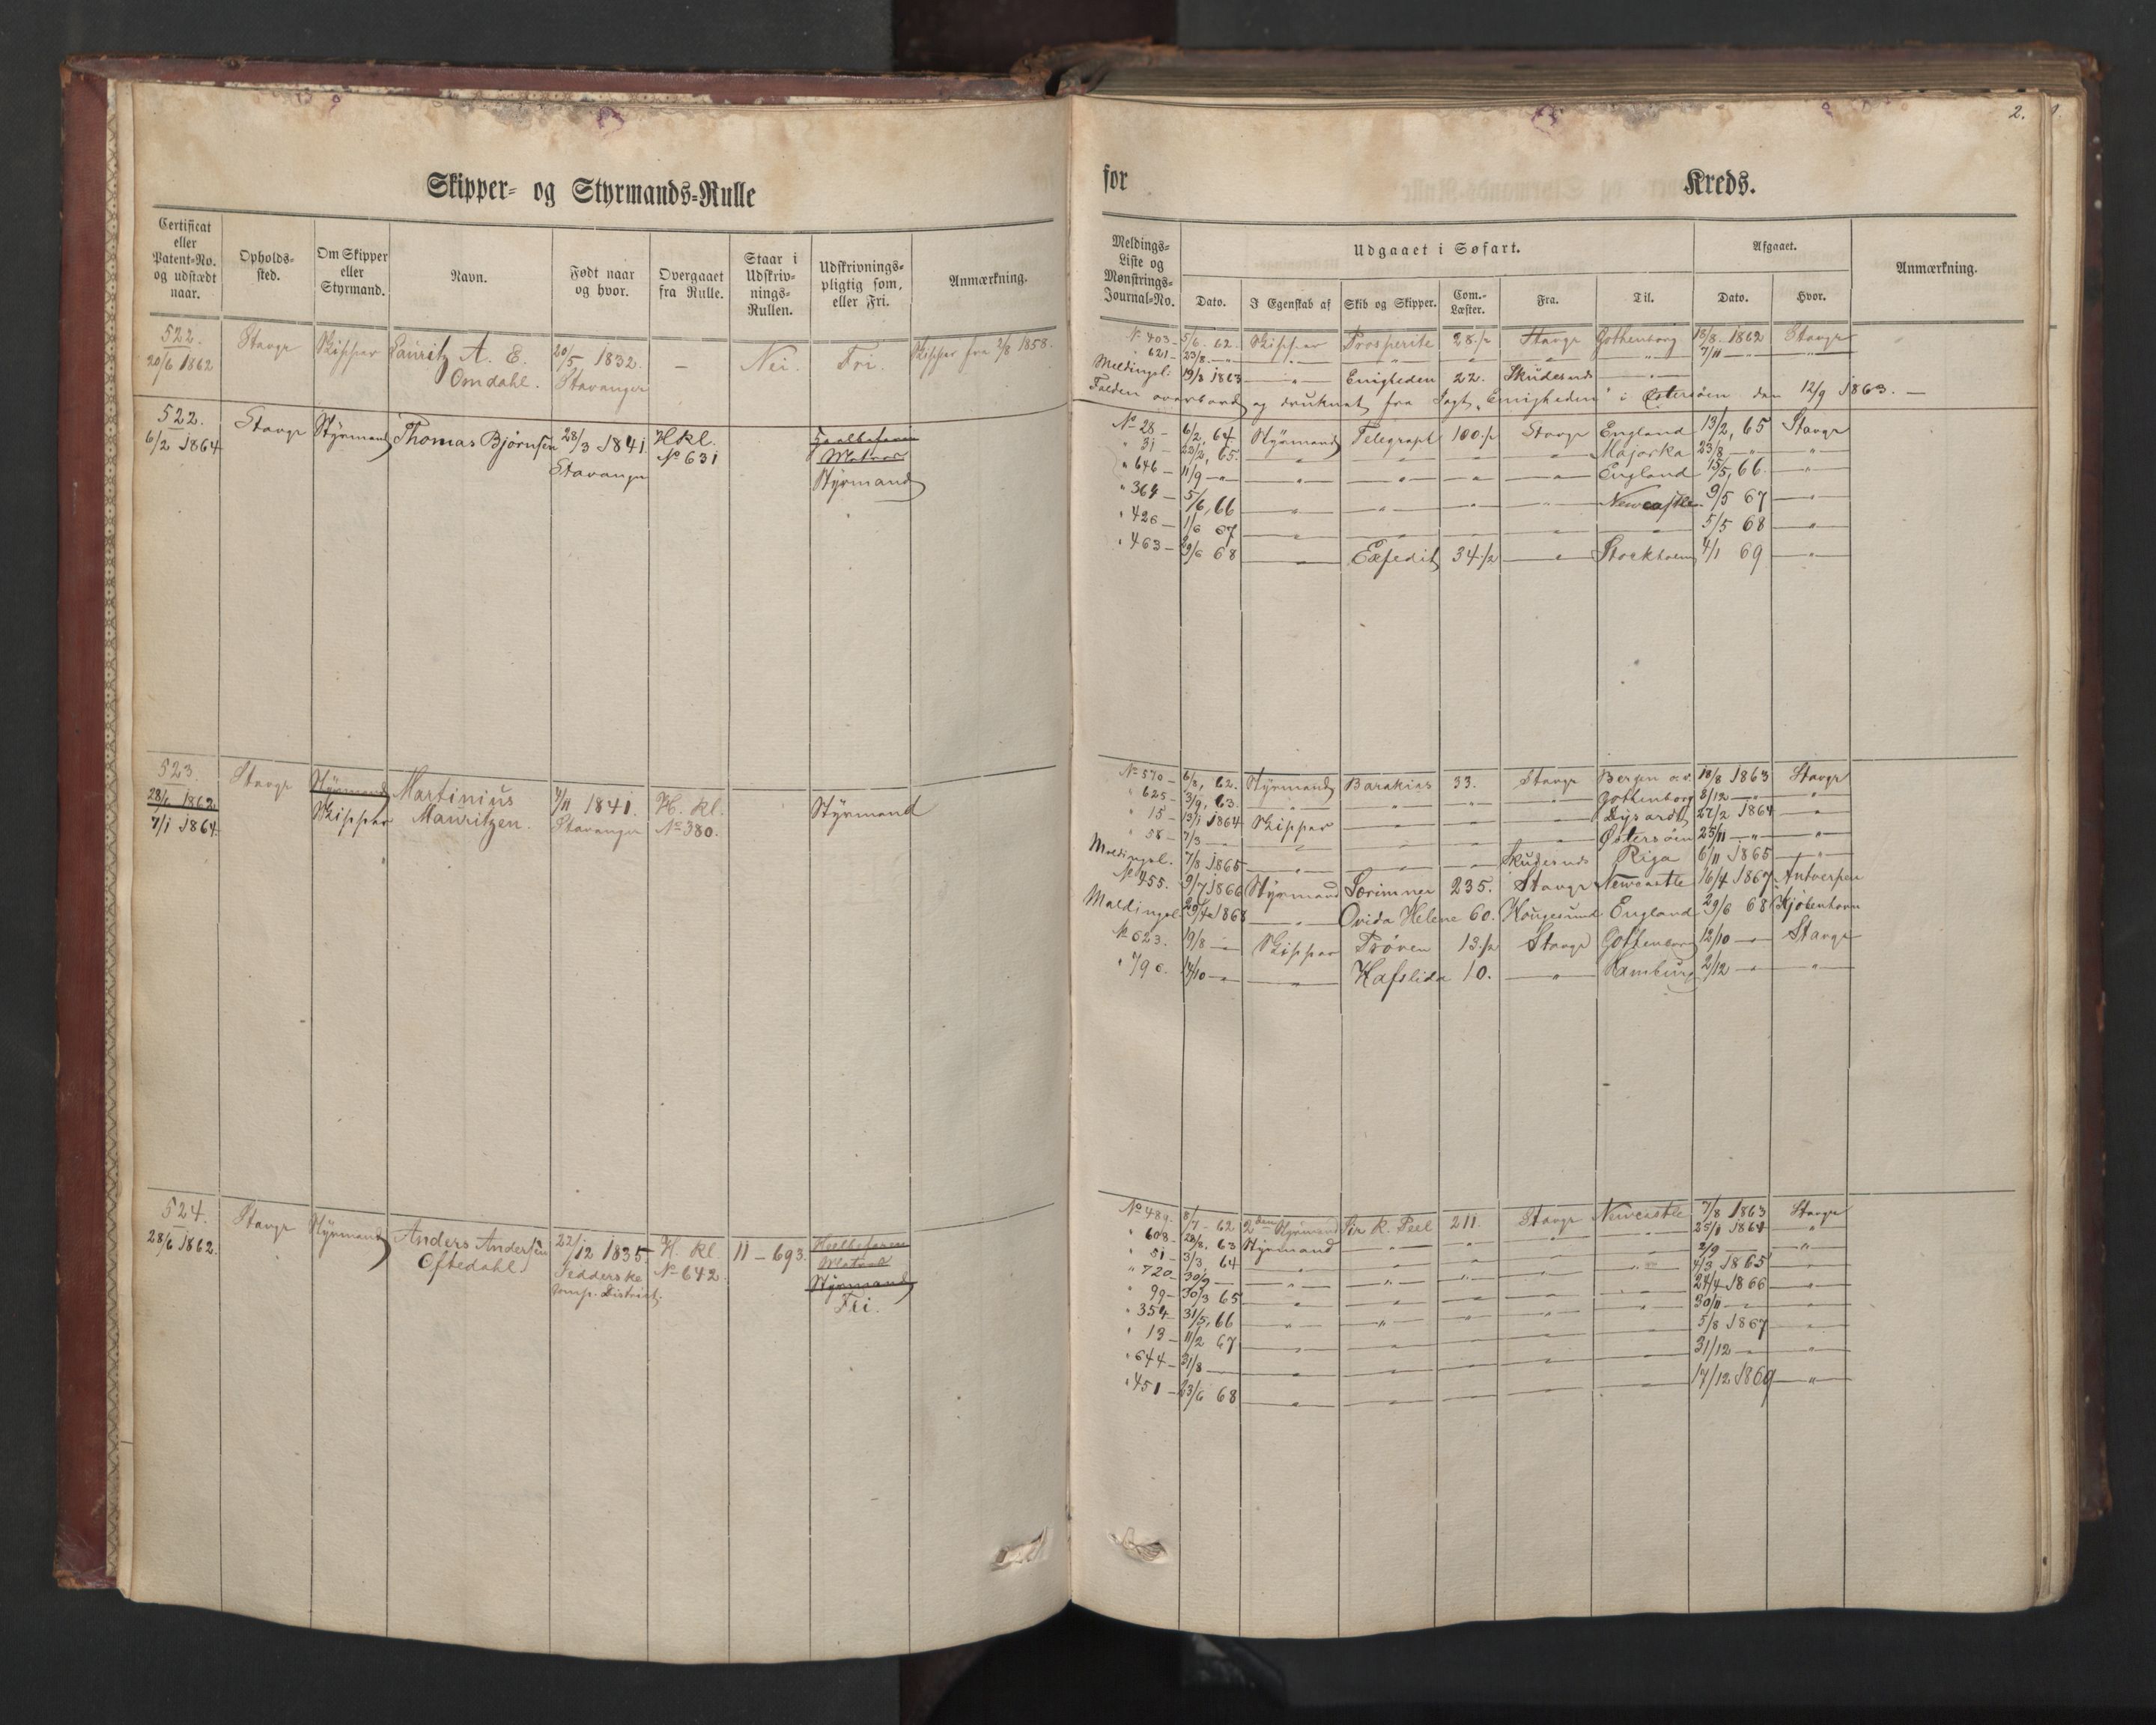 2.
Skipper- og Styrmands-Rulle
for Kreds.
Certificat eller Patent-No. og udstædt naar.
Opholds-sted.
Om Skipper eller Styrmand.
Navn.
Født naar og hvor.
Overgaaet fra Rulle.
Staar i Udskriv-nings-Rullen.
Udskrivnings-pligtig som, eller Fri.
Anmærkning.
Meldings-Liste og Mønstrings-Journal-No.
Udgaaet i Søfart.
Dato.
I Egenskab af
Skib og Skipper.
Com.-Læster.
Fra.
Til.
Afgaaet.
Dato.
Hvor.
Anmærkning.
522. Stavgr Skipper Lauritz A. E. 20/5 1832. — Nei. Fri. Skipper fra 2/8 1858.
20/6 1862 Omdahl. Stavanger
No 403 — 5/6. 62. Skipper Prosperite 28 1/2 Stavgr Gothenborg 18/8 1862 Stavgr
" 621 — 23/8 — " — " — " — " — " — " 7/11 — " — "
Meldingsl. 19/8 1863 — " — Enigheden 22. Skudesnds — " —
Falden overbord og druknet fra Jagt "Enigheden" i Østersöen den 12/9 1863. —
522. Stavgr Styrmand Thomas Björnsen 28/3 1841. H kl.
6/2 1864 Stavanger No 631
Matros
Styrmand
No 28 — 6/2, 64 Styrmand Telegraph 100 1/2 Stavgr England 13/2, 65 Stavgr
" 31 — 22/2, 65. — " — " — " — " — Majorka 23/8 — " — "
" 646 — 11/9 — " — " — " — " — " — England 15/5, 66. — "
" 364 — 5/6, 66 — " — " — " — " — Newcastle 9/5 67 — "
" 426 — 1/6 67 — " — " — " — " — " — 5/5 68 — "
" 463 — 29/6 68 — " — Expedit 34 1/2 — " — Stockholm 4/1 69 — "
523. Stavgr Styrmand Martinius 4/11 1841. H. kl. Styrmand
28/6 1862 Skipper Mauritzen. Stavanger No 380.
7/1 1864
No 570 — 6/8, 62. Styrmand Barakias 33. Stavgr Bergen o.v. 18/8 1863 Stavgr
" 625 — 3/9, 63. — " — " — " — " — Gothenborg 8/12 — " — "
" 15 — 13/1 1864 Skipper — " — " — " — Dysardt 27/2 1864 — "
" 58 — 7/3 — " — " — " — " — Østersöen 25/11 — " — "
Meldingsl. 7/8 1865 — " — " — " — Skudesnds Riga 6/11 1865 — "
No 455. 9/7 1866 Styrmand Særimner 235. Stavgr Newcastle 16/4 1867 Antverpen
Meldingsl. 1868 — " — Ovida Helene 60. Haugesund England 29/6 68 Kjöbenhavn
No 623. 19/8 — " Skipper Pröven 13 1/2 Stavgr Gothenborg 12/10 — " Stavgr
" 790. 14/10 — " — " — Hafslida 10. — " — Hamburg 2/12 — " — "
524. Stavgr Styrmand Anders Andersen 22/12 1835. H. kl. 11 — 693.
28/6 1862. Oftedahl. Jedderske No 642.
Komp. District.
Heelbefaren
Matros
Styrmand
Fri.
No 489. 8/7 - 62 2den Styrmand Sir R. Peel 211. Stavgr Newcastle 7/8 1863 Stavgr
" 608 — 28/8, 63 Styrmand — " — " — " — " — 25/1 1864 — "
" 51 — 3/3, 64 — " — " — " — " — " — 2/9 — " — "
" 720 — 30/9 — " — " — " — " — " — " — 4/3 1865 — "
" 99 — 30/3 65 — " — " — " — " — " — 24/4 1866 — "
" 354 — 31/5, 66 — " — " — " — " — " — 30/11 — " — "
" 13 — 11/2 67 — " — " — " — " — " — 5/8 1867 — "
" 644 — 31/8 — " — " — " — " — " — 31/12 — " — "
" 451 — 23/6 68 — " — " — " — " — " — 17/12 1869 — "